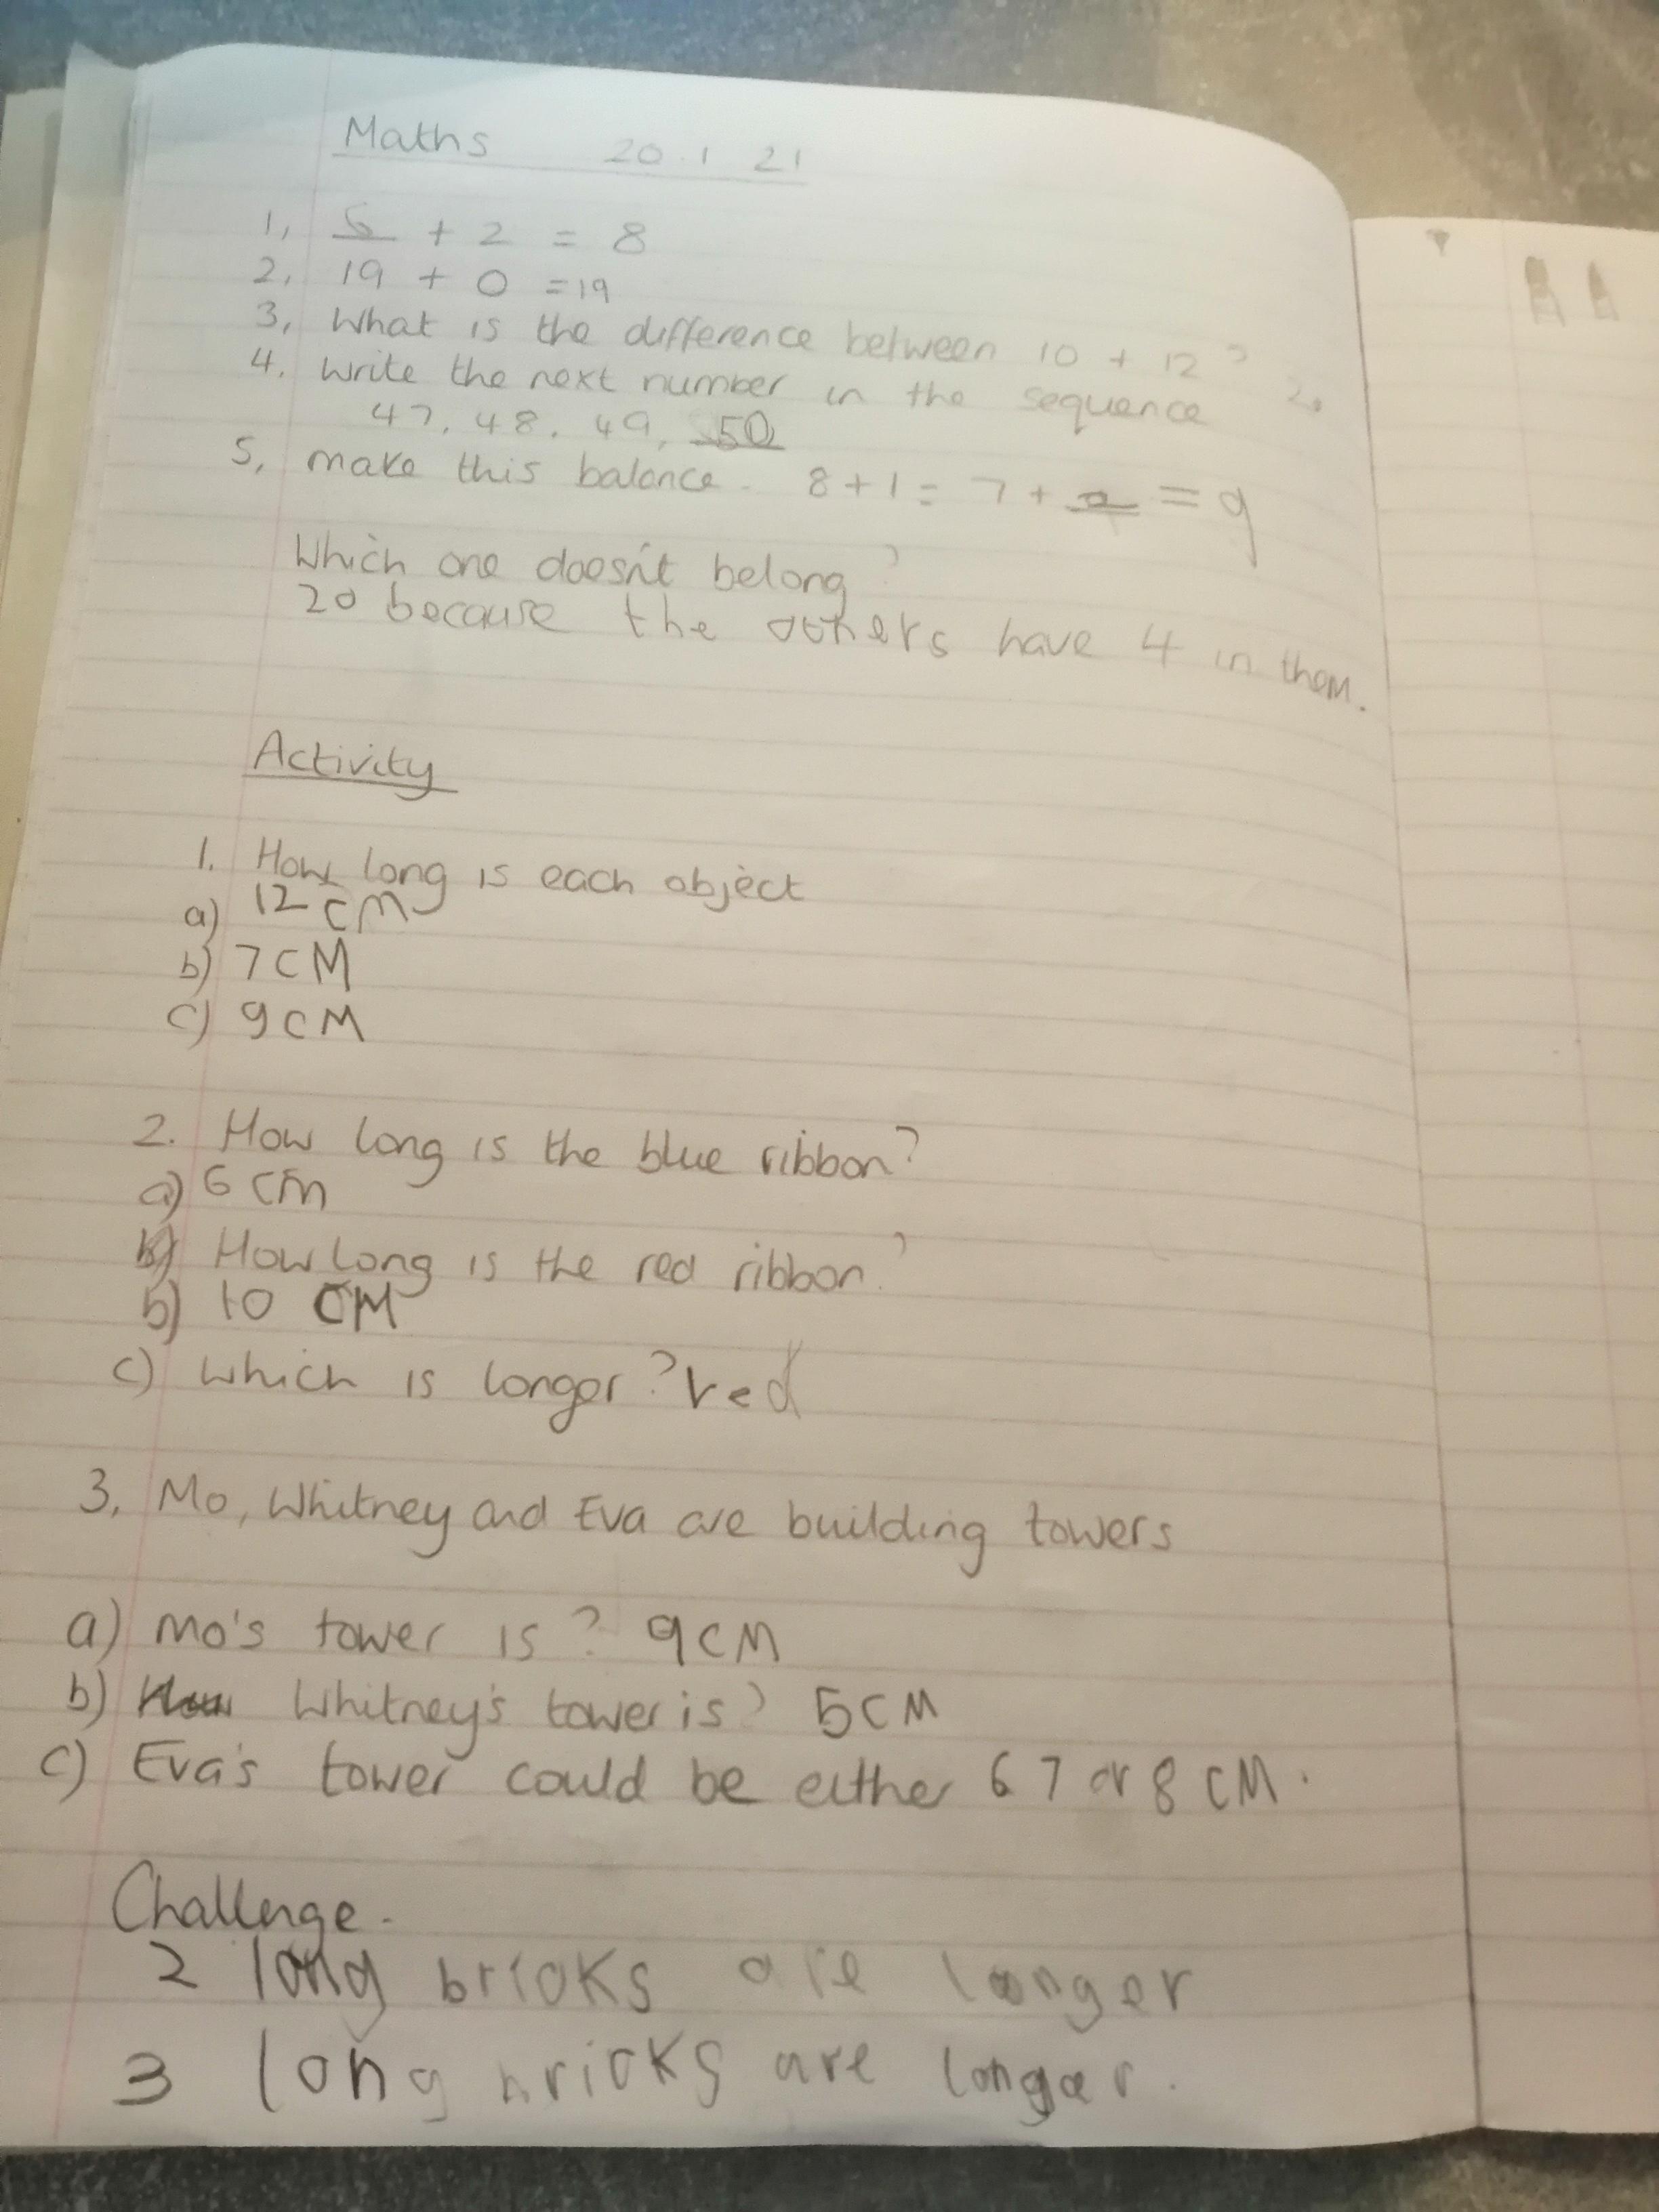 Maths 20.1 21
1, 6 + 2 = 8
2, 19 + 0 = 19
3, What is the difference between 10 + 12 ? 2.
4. Write the next number in the sequence
47, 48, 49, 50
5, make this balance - 8 + 1 = 7 + 2 = 9
Which one doesn't belong?
20 because the others have 4 in them.
Activity
1. How long is each object
a) 12 cm
b) 7 CM
c) 9 CM
2. How long is the blue ribbon?
a) 6 cm
b) How long is the red ribbon?
b) 10 CM
c) Which is longer? red
3, Mo, Whitney and Eva are building towers
a) Mo's tower is? 9 CM
b) Whitney's tower is? 5 CM
c) Eva's tower could be either 6 7 or 8 CM.
Challenge -
2 long bricks are longer
3 long bricks are longer.